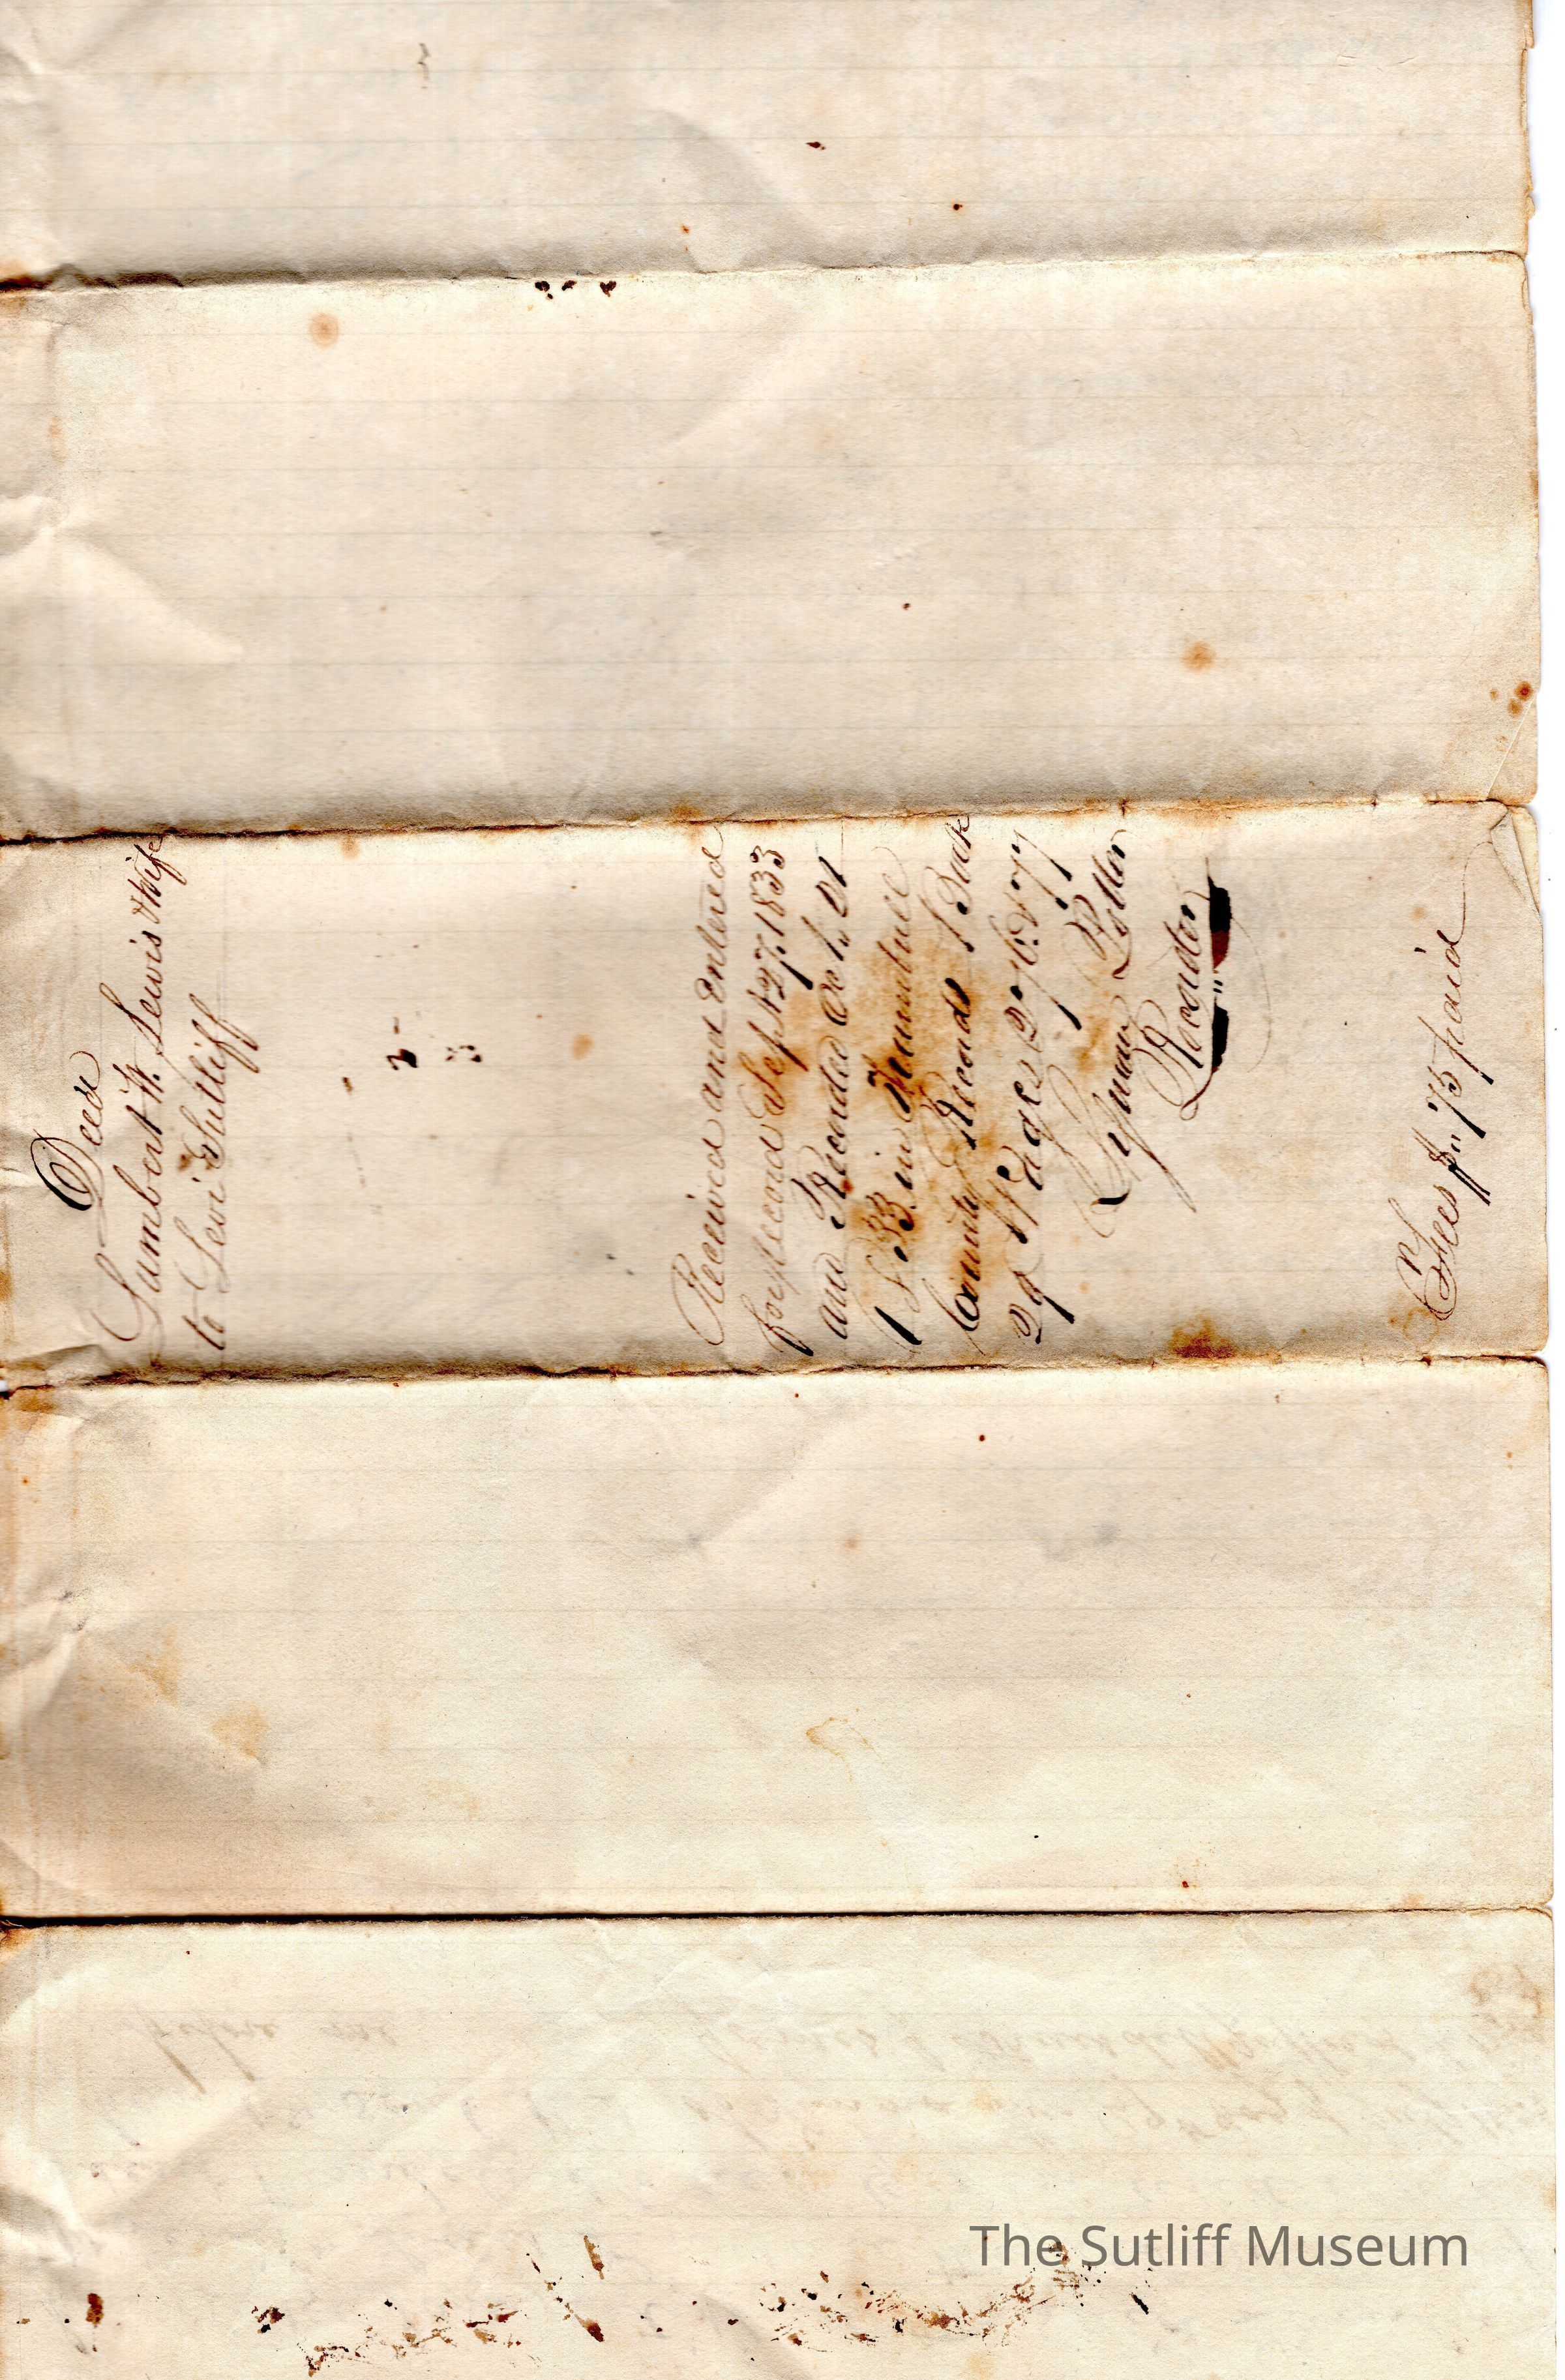 Deed
Lambert W. Lewis & Wife
to Levi Sutliff
Received and Entered
for Record Sept 27, 1833
and Recorded Oct. 21
1833 in Trumbull
County Records Book
29 Pages 276 & 277
Lyman Potter
Recorder
Fees $ "75 paid
before me
The Sutliff Museum